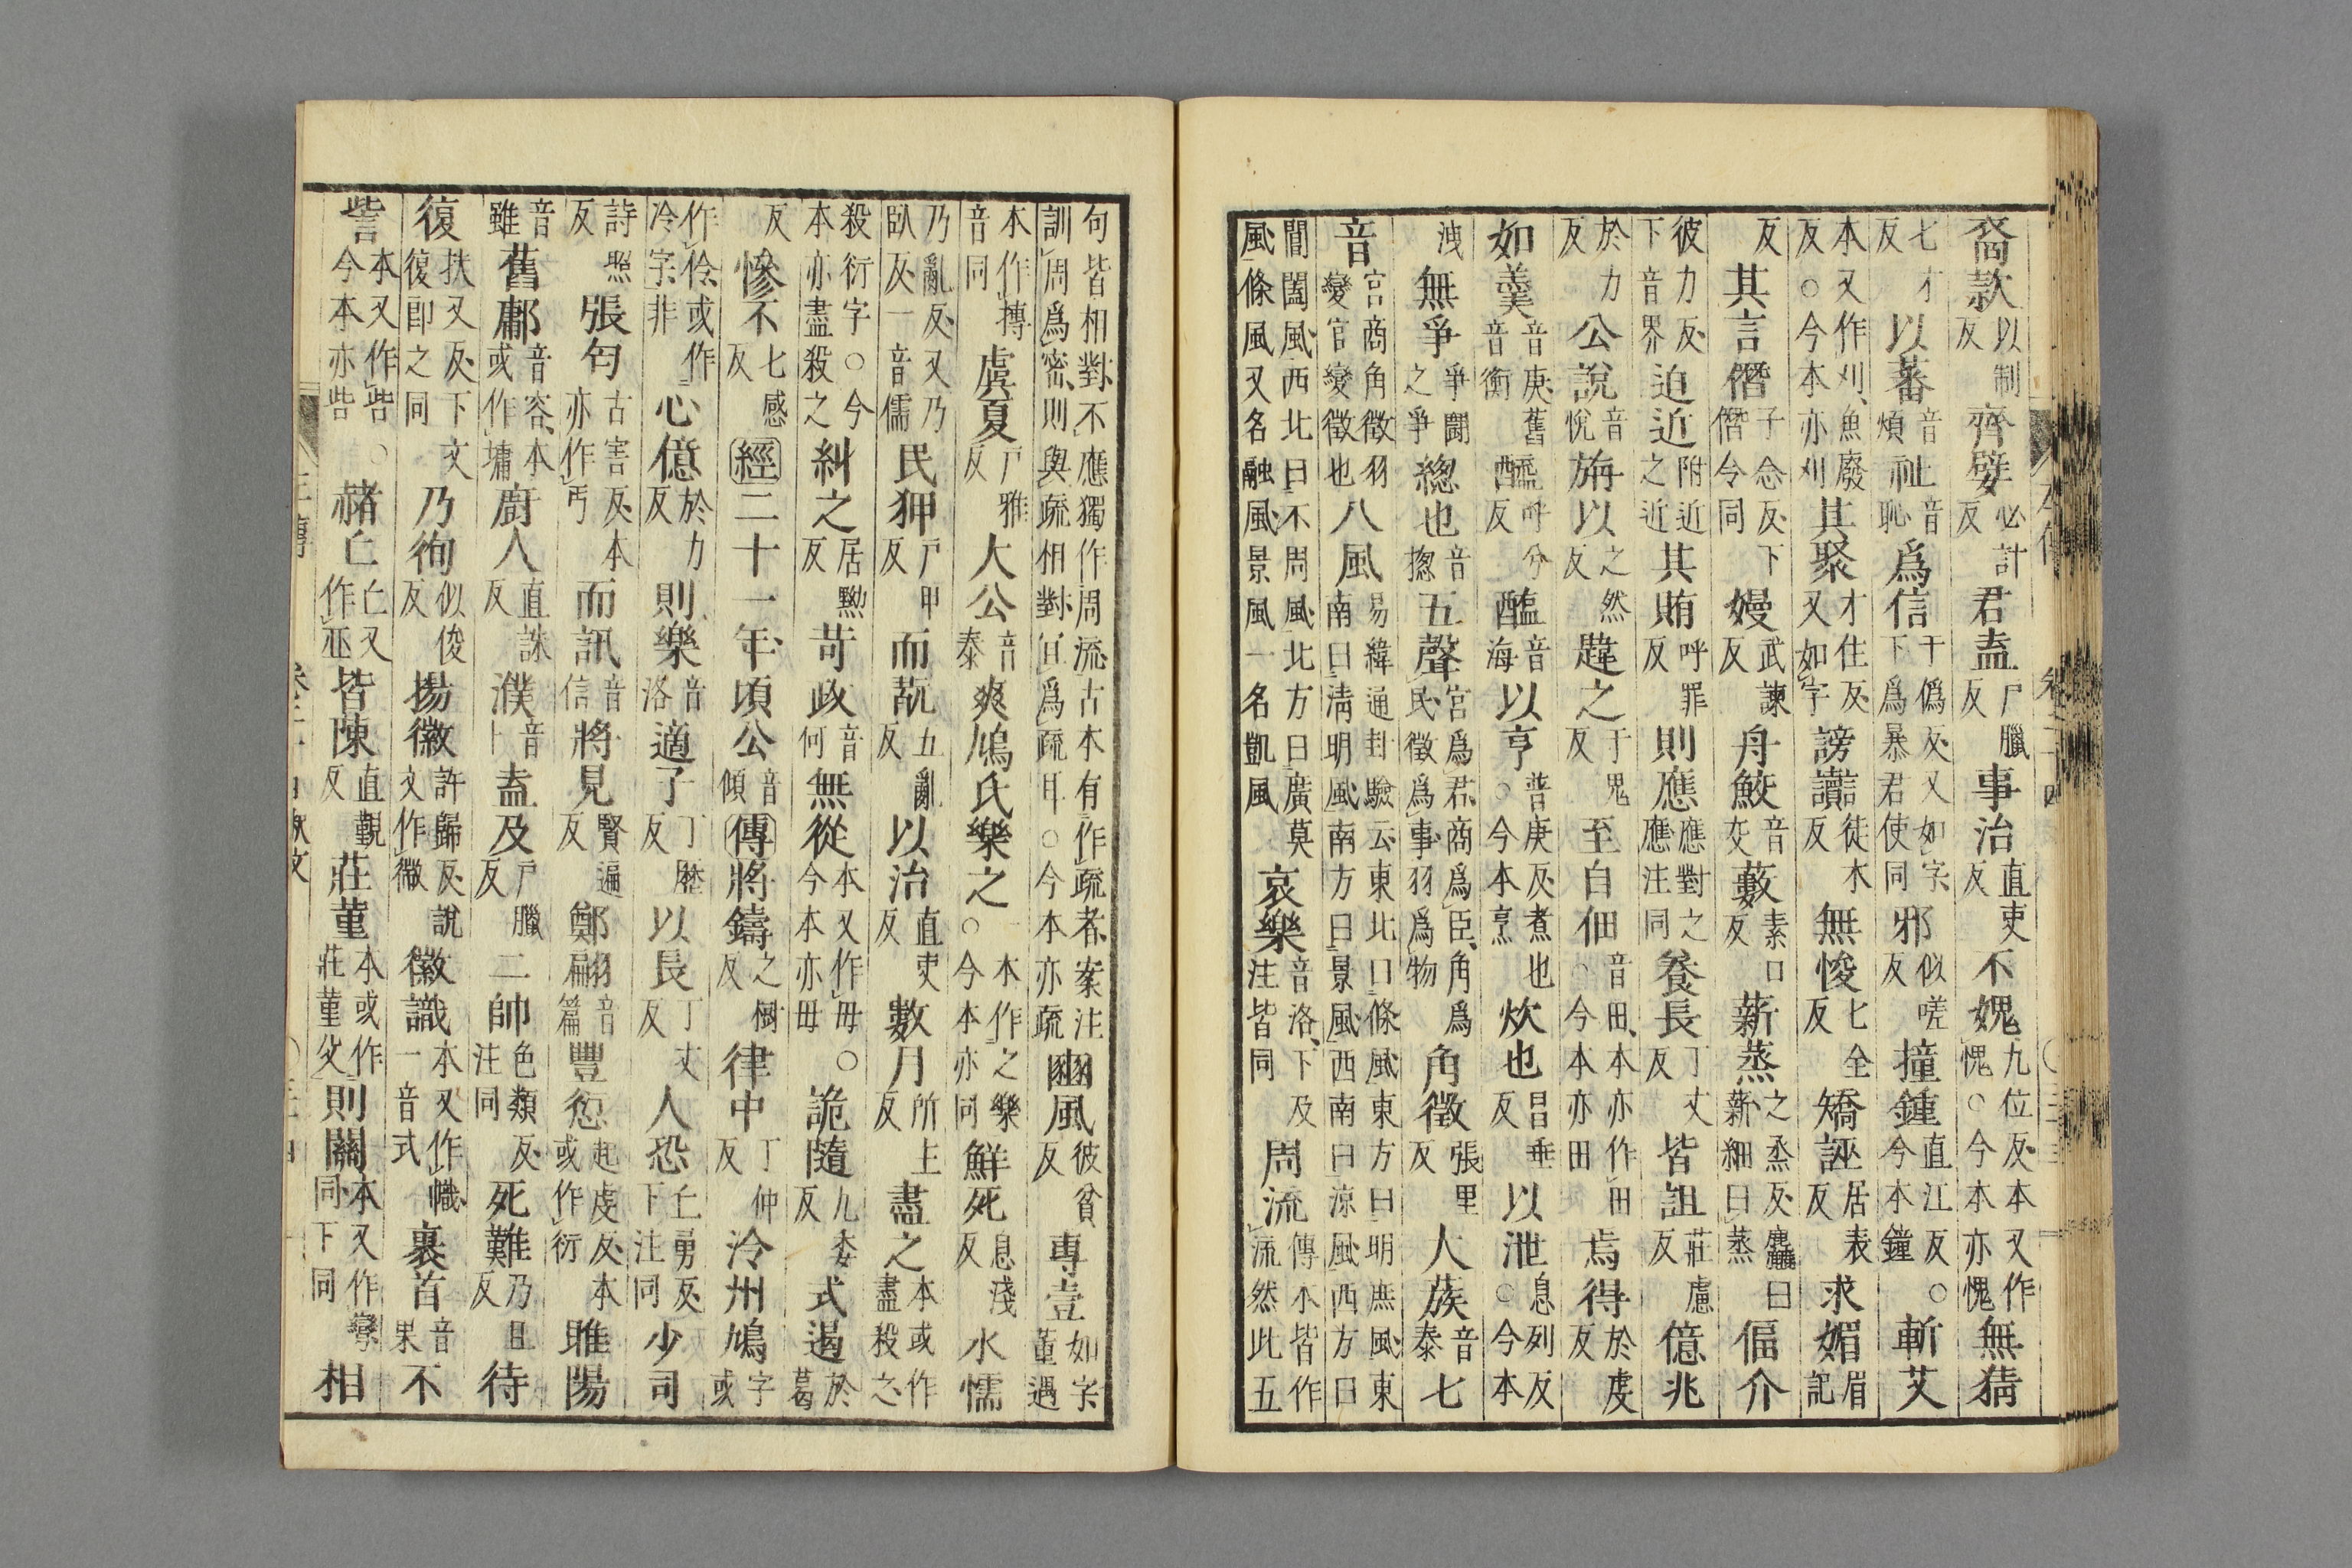 裔款以制反齊嬖必計反君盍戸臘反事治直吏反不媿九位反本又作愧○今本亦愧無猜
七才反以蕃音煩祉音恥爲信于僞反又如字下爲暴君使同邪似嗟反撞鍾直江反○今本鐘斬艾
本又作刈魚廢反○今本亦刈其聚才住反又如字謗讟徒木反無悛七全反矯誣居表反求媚眉記
反其言僭子念反下僭令同嫚武諫反舟鮫音交藪素口反薪蒸之烝反麤曰薪細曰蒸偪介
彼力反下音界迫近附近之近其賄呼罪反則應應對之應注同養長丁丈反皆詛莊慮反億兆
於力反公說音悅旃以之然反韙之于鬼反至自佃音田本亦作田○今本亦田焉得於虔反
如羹音庚舊音衡醯呼兮反醢音海以亨普庚反煮也○今本烹炊也昌垂反以泄息列反○今本
洩無爭爭鬪之爭總也音揔五聲宮爲君商爲臣角爲民徵爲事羽爲物角徵張里反人蔟音泰七
音宮商角徵羽變宮變徵也八風易緯通卦驗云東北曰條風東方曰明庶風東南曰淸明風南方曰景風西南曰涼風西方曰
閶闔風西北曰不周風北方曰廣莫風條風又名融風景風一名凱風哀樂音洛下及注皆同周流傳本皆作流然此五
句皆相對不應獨作周流古本有作疏者案注訓周爲密則與疏相對宜爲疏耳○今本亦疏豳風彼貧反専壹如字董遇
本作摶音同虞夏戸雅反大公音泰爽鳩氏樂之一本作之樂○今本亦同鮮死息淺反水懦
乃亂反又乃臥反一音儒民狎戸甲反而翫五亂反以治直吏反數月所主反盡之本或作盡殺之
殺衍字○今本亦盡殺之糾之居黝反苛政音何無從本又作毋○今本亦毋詭隨九委反式遏於葛
反慘不七感反經二十一年頃公音傾傳將鑄之樹反律中丁仲反泠州鳩字或
作伶或作冷字非心億於力反則樂音洛適子丁歷反以長丁丈反人恐丘勇反下注同少司
詩照反張匄古害反本亦作丐而訊音信將見賢遍反鄭翩音篇豐愆起虔反本或作衍雎陽
音雖舊鄘音容本或作墉廚人直誅反濮音卜盍及戸臘反二帥色類反注同死難乃旦反待
復扶又反下文復即之同乃徇似俊反揚徽許歸反說文作微徽識本又作幟一音式裹首音果不
訾本又作呰○今本亦呰赭丘丘又作㐀皆陳直覲反莊菫本或作莊菫父則關本又作彎同下同相